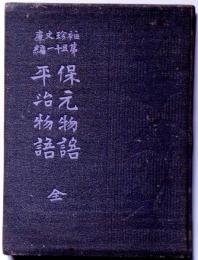 袖珍文庫
第五十一編
保元物語
平治物語
全